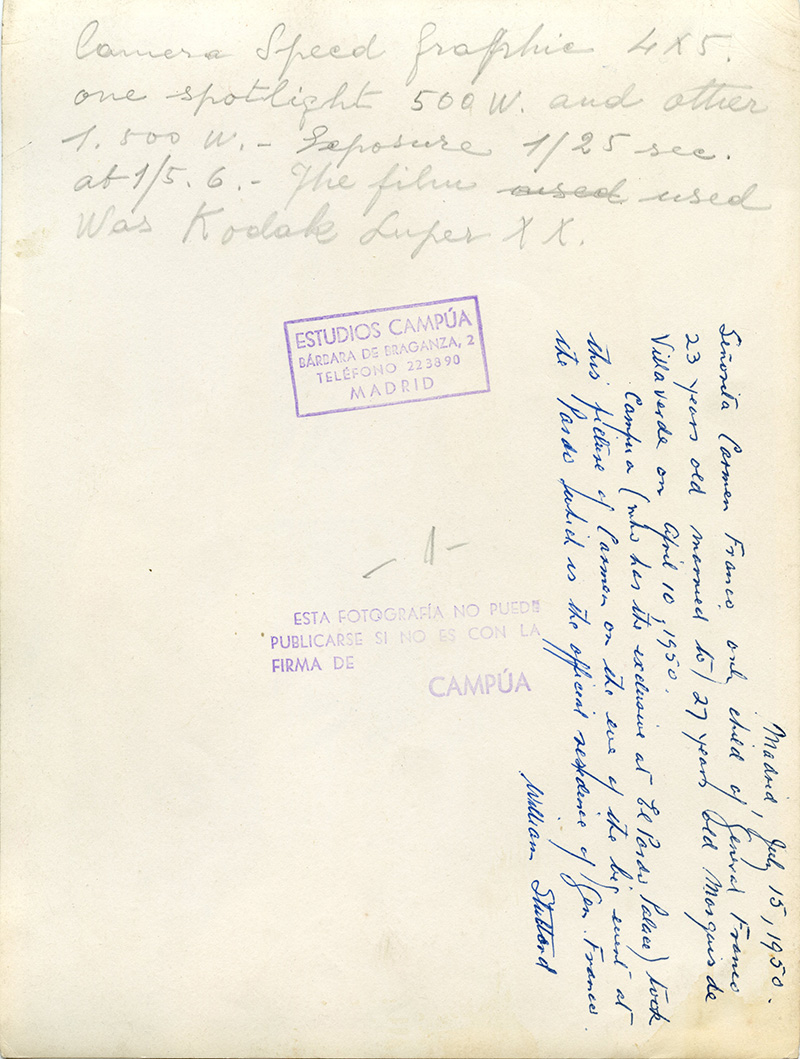 Camera Speed Graphic 4X5.
one spotlight 500 W. and other
1.500 W.- Exposure 1/25 sec.
at 1/5.6.- The film used used
Was Kodak Super XX.
ESTUDIOS CAMPÚA
BÁRBARA DE BRAGANZA, 2
TELÉFONO 223890
MADRID
- 1 -
ESTA FOTOGRAFÍA NO PUEDE
PUBLICARSE SI NO ES CON LA
FIRMA DE
CAMPÚA
Madrid, July 15, 1950.
Señorita Carmen Franco, only child of General Franco
23 years old married to 27 years old Marquis de
Villaverde on April 10, 1950.
Campua (who has the exclusive at El Pardo Palace) took
this picture of Carmen on the eve of the big event at
the Pardo which is the official residence of Gen. Franco.
William